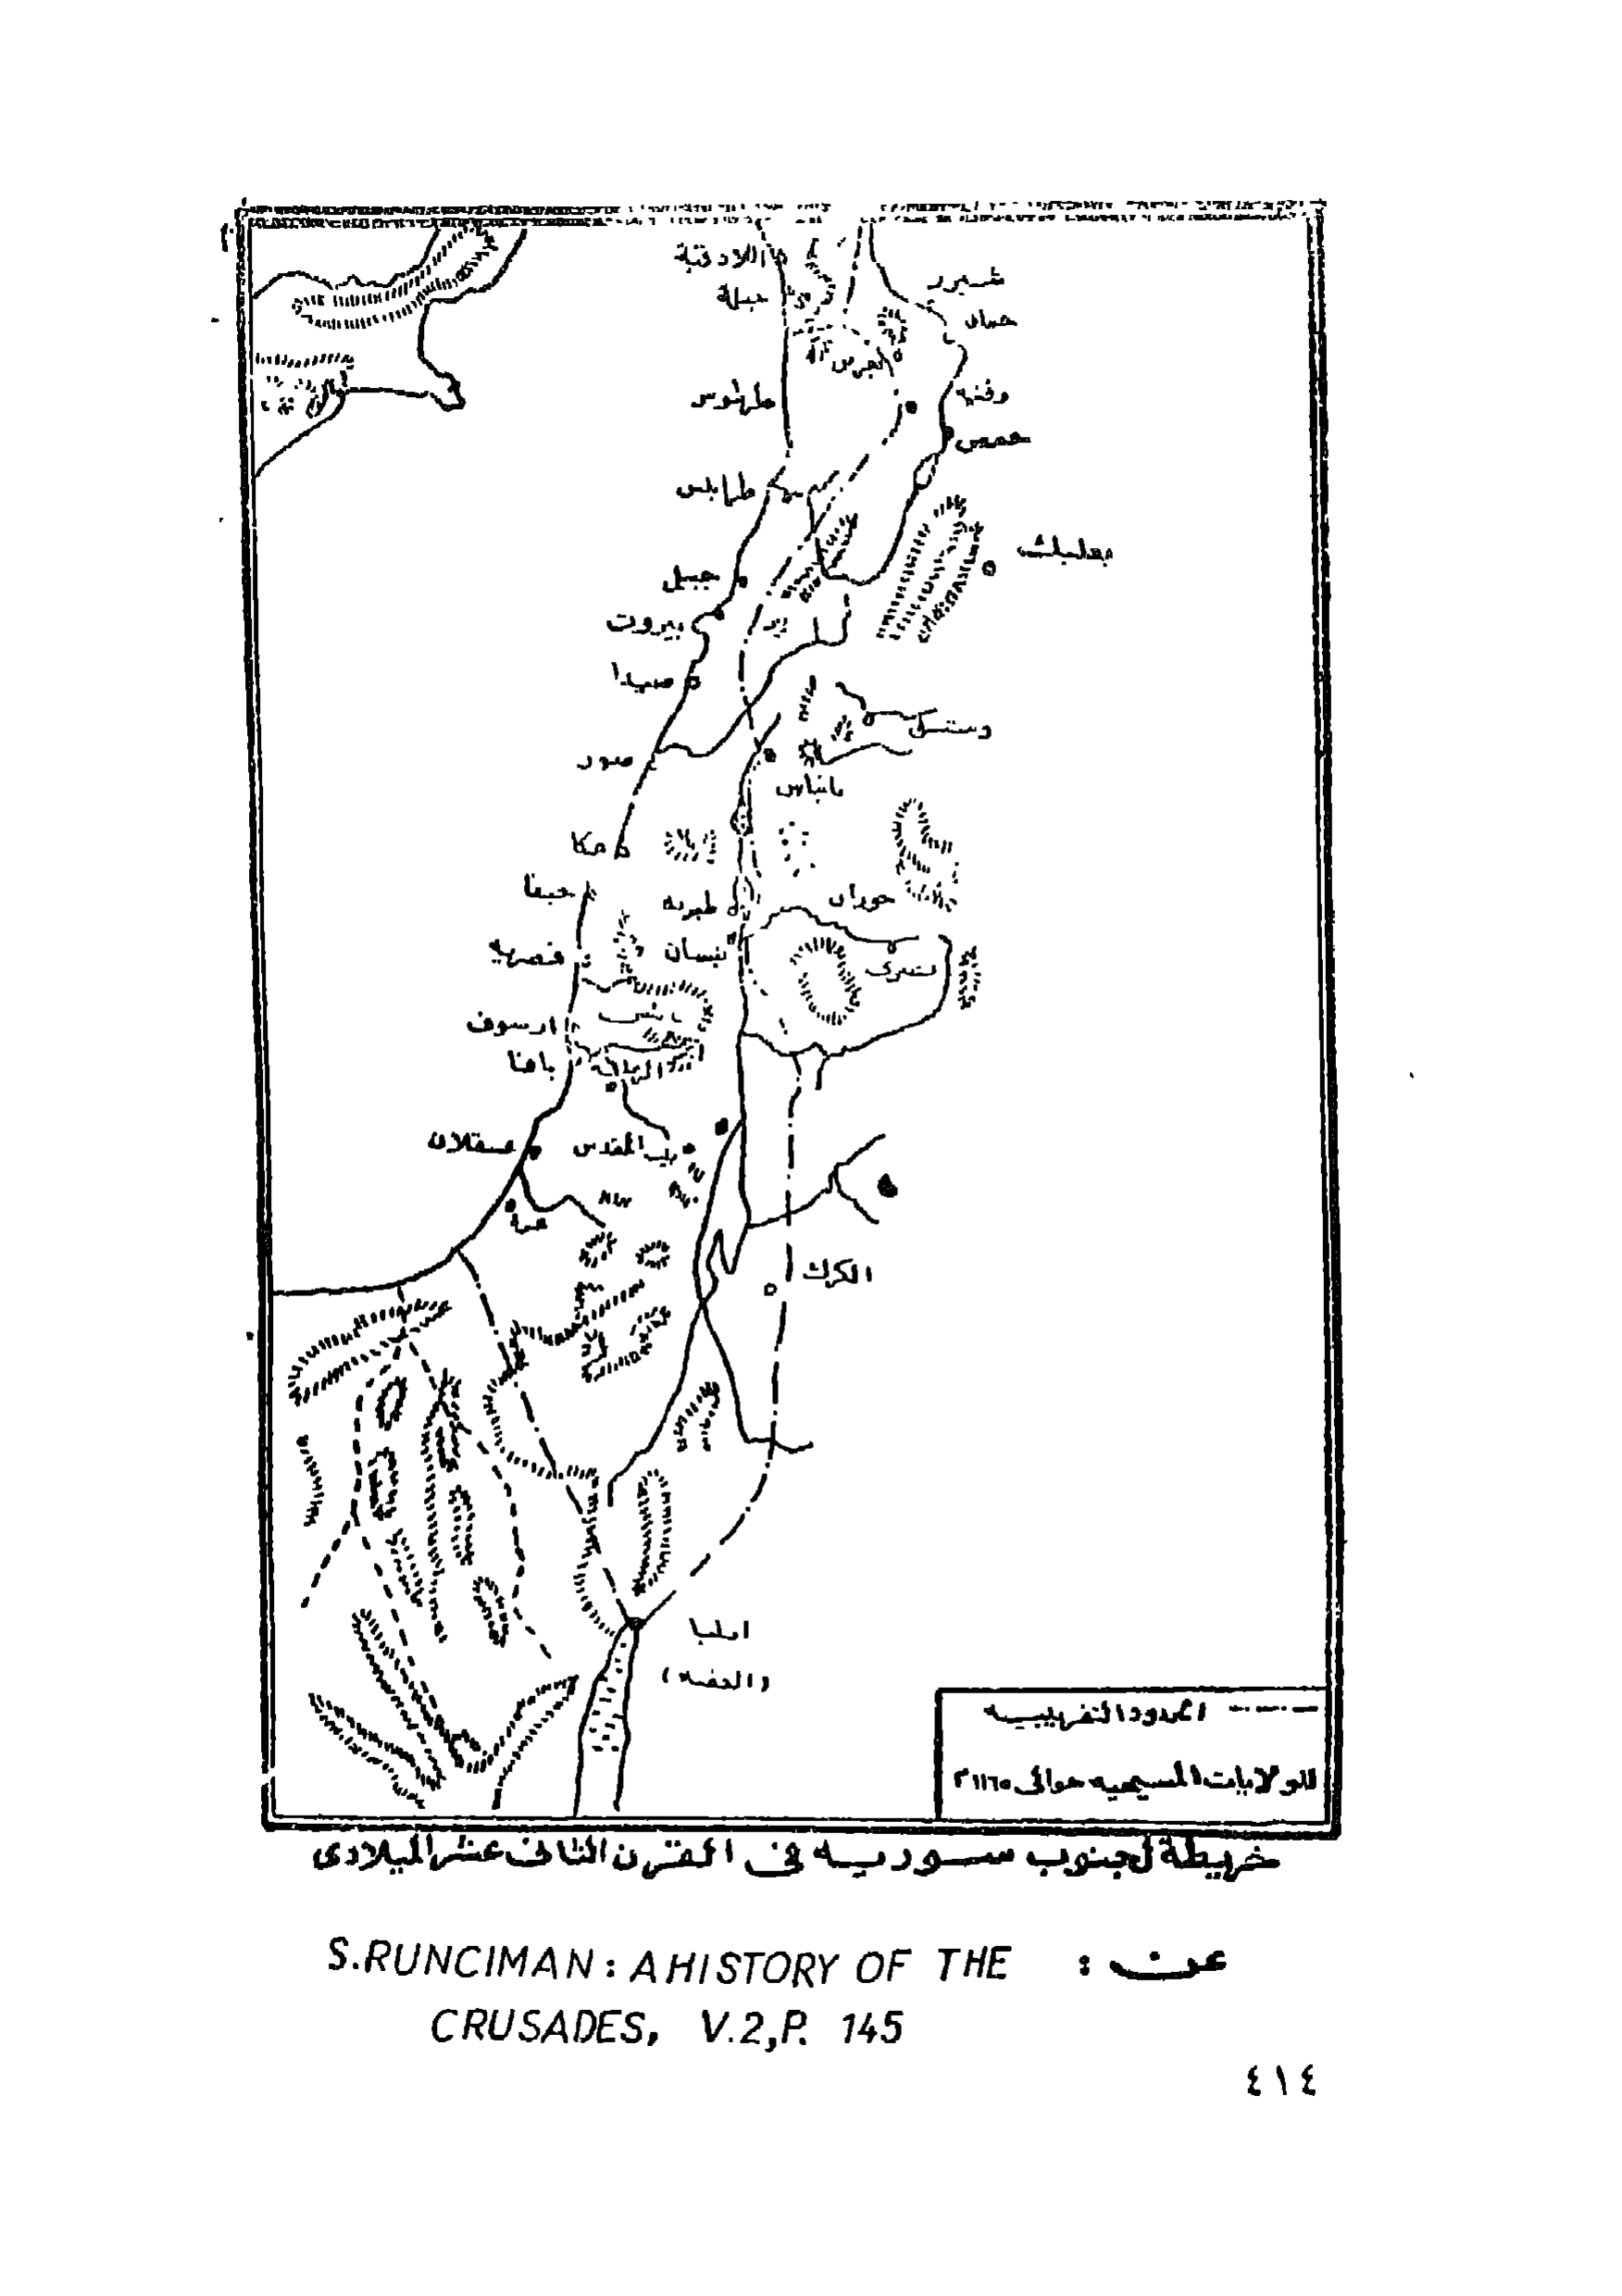 اللاذقية
شيزر
جبلة
حماه
طرطوس
رفنيه
حمص
طرابلس
بعلبك
جبيل
بيروت
صيدا
دمشق
صور
بانياس
عكا
حيفا
طبريه
حوران
قيصريه
بيسان
بصرى
ارسوف
يافا
الرملة
عسقلان
بيت المقدس
غزة
الكرك
ايليا
الحدود التقريبيه
للولايات المسيحيه حوالى ١١٦٥م
خريطة لجنوب سوريه فى القرن الثانى عشر الميلادى
عن : S.RUNCIMAN: A HISTORY OF THE
CRUSADES, V.2,P. 145
٤١٤